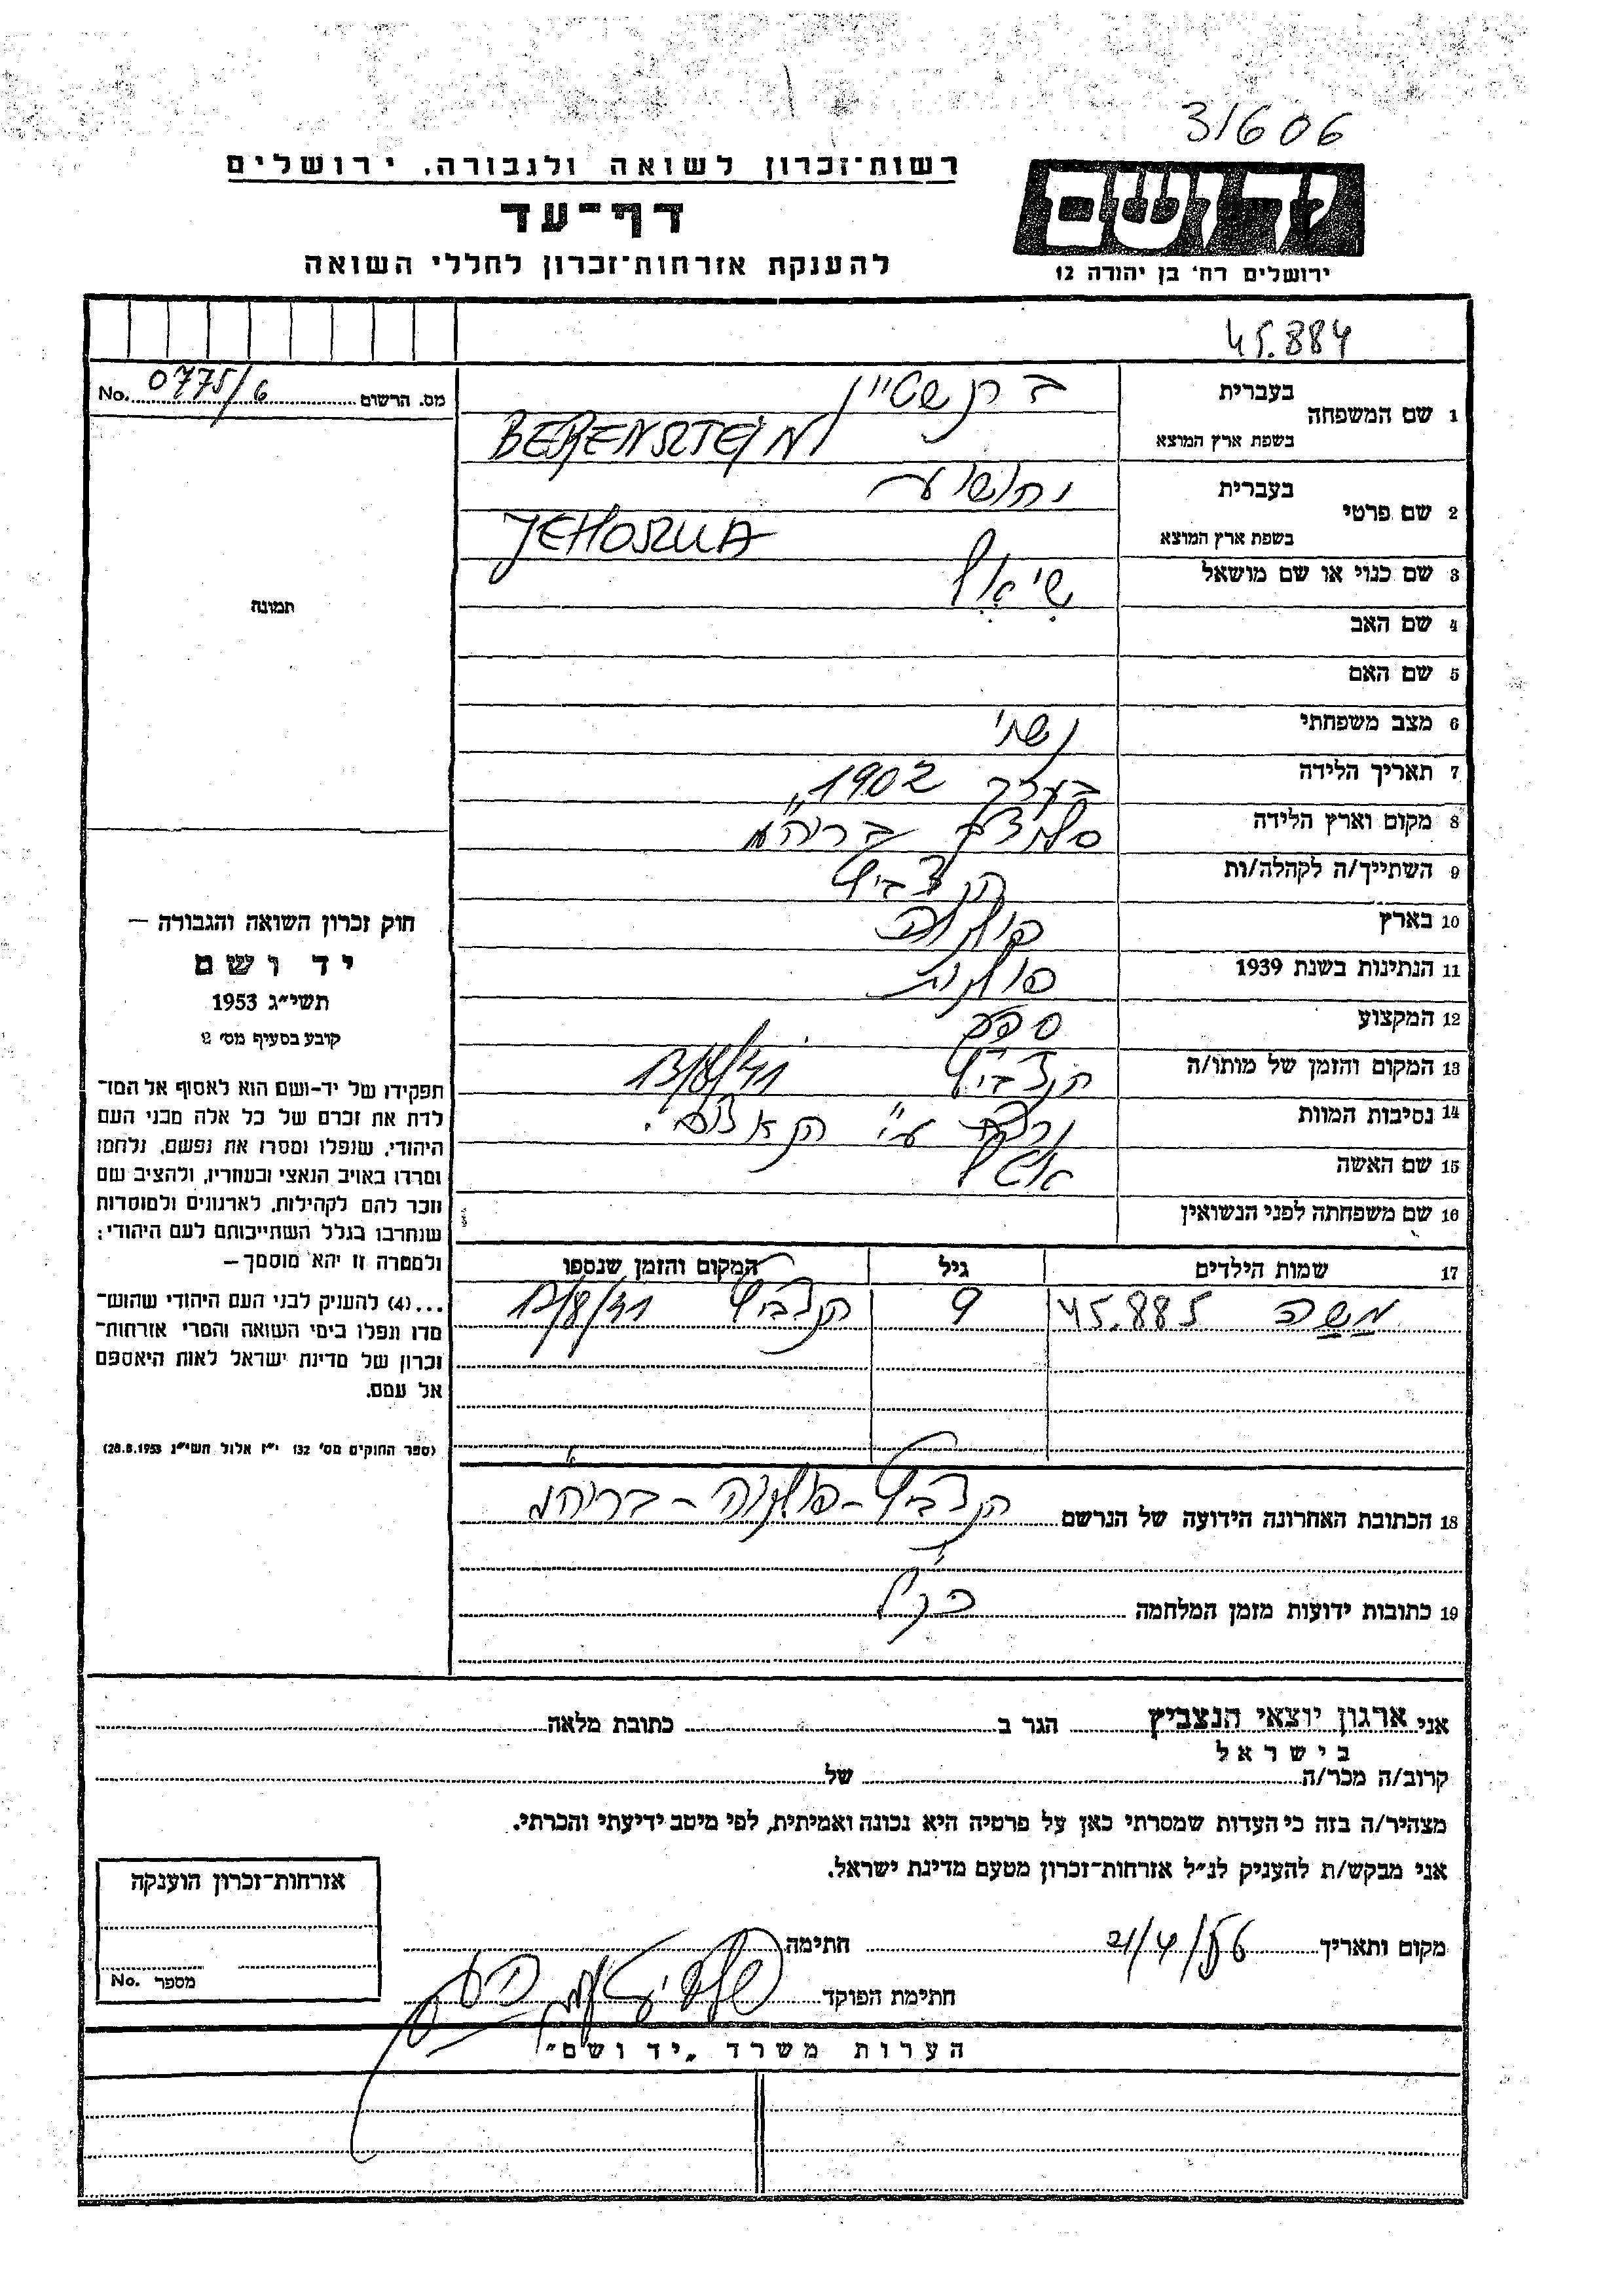 31606
רשות־זכרון לשואה ולגבורה, ירושלים
דף־עד
להענקת אזרחות־זכרון לחללי השואה
ידושם
ירושלים רח׳ בן יהודה 12
45.884
מס. הרשום 0775/6 No.
1 שם המשפחה
בעברית ברנשטיין
בשפת ארץ המוצא BERENSZTEJN
2 שם פרטי
בעברית יהושע
בשפת ארץ המוצא JEHOSZUA
3 שם כנוי או שם מושאל
4 שם האב
5 שם האם
6 מצב משפחתי נשוי
7 תאריך הלידה בערך 1902
8 מקום וארץ הלידה
9 השתייך/ה לקהלה/ות הנצביץ
10 בארץ פולניה
11 הנתינות בשנת 1939 פולנית
12 המקצוע ספר
13 המקום והזמן של מותו/ה הנצביץ 13/8/41
14 נסיבות המוות נרצח ע״י הנאצים.
15 שם האשה
16 שם משפחתה לפני הנשואין
17 שמות הילדים גיל המקום והזמן שנספו
משה 45.885 9 הנצביץ 13/8/41
18 הכתובת האחרונה הידועה של הנרשם הנצביץ - פולניה -
19 כתובות ידועות מזמן המלחמה כנ״ל
תמונה
חוק זכרון השואה והגבורה —
יד ושם
תשי״ג 1953
קובע בסעיף מס׳ 2
תפקידו של יד-ושם הוא לאסוף אל המו־
לדת את זכרם של כל אלה מבני העם
היהודי, שנפלו ומסרו את נפשם, נלחמו
ומרדו באויב הנאצי ובעוזריו, ולהציב שם
וזכר להם לקהילות, לארגונים ולמוסדות
שנחרבו בגלל השתייכותם לעם היהודי;
ולמטרה זו יהא מוסמך —
...(4) להעניק לבני העם היהודי שהוש־
מדו ונפלו בימי השואה והמרי אזרחות־
זכרון של מדינת ישראל לאות היאספם
אל עמם.
(ספר החוקים מס׳ 132 י״ז אלול תשי״ג 28.8.1953)
אני ארגון יוצאי הנצביץ הגר ב כתובת מלאה
בישראל
קרוב/ה מכר/ה של
מצהיר/ה בזה כי העדות שמסרתי כאן על פרטיה היא נכונה ואמיתית, לפי מיטב ידיעתי והכרתי.
אני מבקש/ת להעניק לנ״ל אזרחות־זכרון מטעם מדינת ישראל.
מקום ותאריך 21/4/56 חתימה
חתימת הפוקד
אזרחות־זכרון הוענקה
מספר No.
הערות משרד „יד ושם״